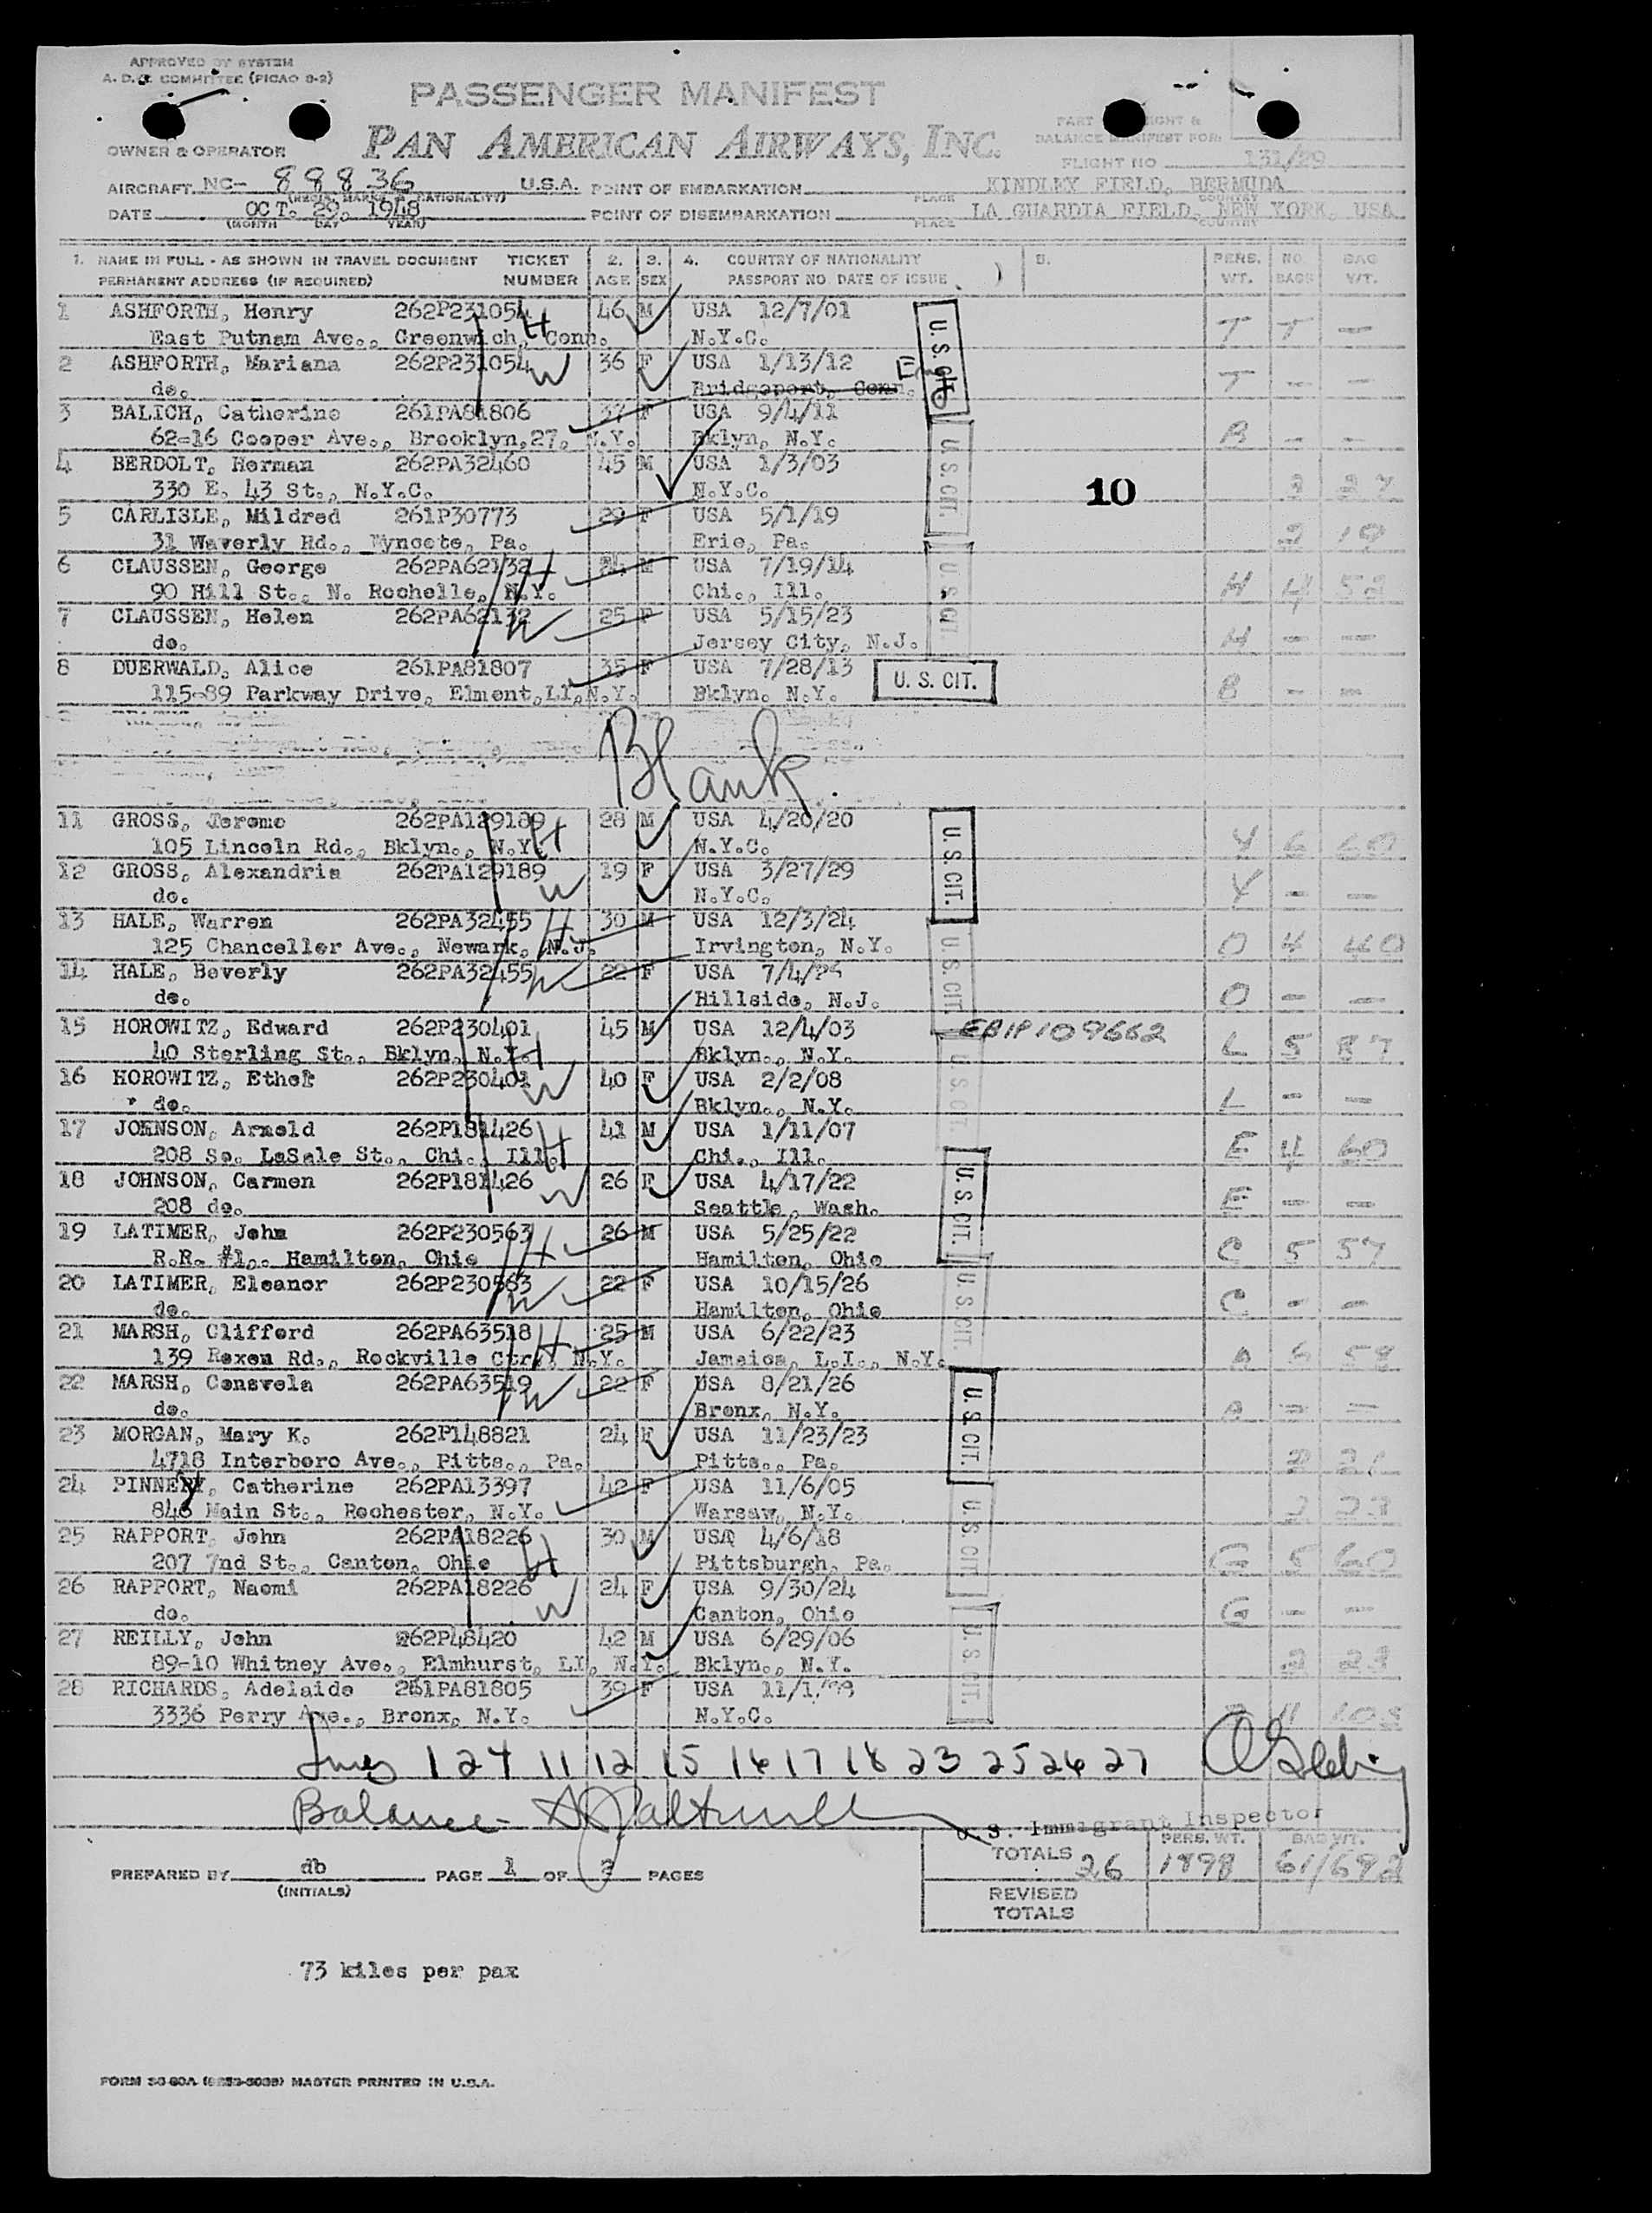 APPROVED BY SYSTEM
A. D. F. COMMITTEE (PICAO 9-2)
PASSENGER MANIFEST
PAN AMERICAN AIRWAYS, INC.
OWNER & OPERATOR
PART WEIGHT &
BALANCE MANIFEST FOR
FLIGHT NO 131/29
AIRCRAFT NC- 88836 U.S.A. POINT OF EMBARKATION KINDLEY FIELD, BERMUDA
(REGIS. MARKS & NATIONALITY) PLACE COUNTRY
DATE OCT. 29, 1948 POINT OF DISEMBARKATION LA GUARDIA FIELD, NEW YORK, USA
(MONTH DAY YEAR) PLACE COUNTRY
1. NAME IN FULL - AS SHOWN IN TRAVEL DOCUMENT TICKET 2. 3. 4. COUNTRY OF NATIONALITY 5. PERS. NO. BAG
PERMANENT ADDRESS (IF REQUIRED) NUMBER AGE SEX PASSPORT NO. DATE OF ISSUE ) WT. BAGS WT.
1 ASHFORTH, Henry 262P231054 H 46 M USA 12/7/01 U.S. CIT.
East Putnam Ave., Greenwich, Conn. N.Y.C. T T —
2 ASHFORTH, Mariana 262P231054 W 36 F USA 1/13/12
do. Bridgeport, Conn. T — —
3 BALICH, Catherine 261PA81806 37 F USA 9/4/11
62-16 Cooper Ave., Brooklyn,27, N.Y. Bklyn, N.Y. B — —
4 BERDOLT, Herman 262PA32460 45 M USA 1/3/03 U.S. CIT.
330 E. 43 St., N.Y.C. N.Y.C. 10
5 CARLISLE, Mildred 261P30773 29 F USA 5/1/19
31 Waverly Rd., Wyncote, Pa. Erie, Pa. 2 19
6 CLAUSSEN, George 262PA62132 H 34 M USA 7/19/14 U.S. CIT.
90 Hill St., N. Rochelle, N.Y. Chi., Ill. H 4 52
7 CLAUSSEN, Helen 262PA62132 W 25 F USA 5/15/23
do. Jersey City, N.J. H — —
8 DUERWALD, Alice 261PA81807 35 F USA 7/28/13 U. S. CIT.
115-89 Parkway Drive, Elmont,LI,N.Y. Bklyn. N.Y. B — —
Blank.
11 GROSS, Jerome 262PA129189 H 28 M USA 4/20/20 U.S. CIT.
105 Lincoln Rd., Bklyn., N.Y. N.Y.C. Y 6 60
12 GROSS, Alexandria 262PA129189 W 19 F USA 3/27/29
do. N.Y.C. Y — —
13 HALE, Warren 262PA32455 H 30 M USA 12/3/24 U.S. CIT.
125 Chanceller Ave., Newark, N.J. Irvington, N.Y. O 4 40
14 HALE, Beverly 262PA32455 W 22 F USA 7/4/26
do. Hillside, N.J. O — —
15 HOROWITZ, Edward 262P230401 45 M USA 12/4/03 EBIP109662
40 Sterling St., Bklyn, N.Y. H Bklyn., N.Y. L 5 87
16 HOROWITZ, Ethel 262P230401 W 40 F USA 2/2/08 U.S. CIT.
do. Bklyn., N.Y. L — —
17 JOHNSON, Arnold 262P181426 H 41 M USA 1/11/07
208 So. LaSale St., Chi., Ill. Chi., Ill. E 4 60
18 JOHNSON, Carmen 262P181426 W 26 F USA 4/17/22 U.S. CIT.
208 do. Seattle, Wash. E — —
19 LATIMER, John 262P230563 H 26 M USA 5/25/22
R.R. #1,. Hamilton, Ohio Hamilton, Ohio C 5 57
20 LATIMER, Eleanor 262P230563 W 22 F USA 10/15/26 U.S. CIT.
do. Hamilton, Ohio C — —
21 MARSH, Clifford 262PA63518 H 25 M USA 6/22/23
139 Roxen Rd., Rockville Ctr. N.Y. Jamaica, L.I., N.Y. A 5 58
22 MARSH, Consvela 262PA63519 W 22 F USA 8/21/26 U.S. CIT.
do. Bronx, N.Y. A — —
23 MORGAN, Mary K. 262P148821 24 F USA 11/23/23
4718 Interboro Ave., Pitts., Pa. Pitts., Pa. 2 21
24 PINNEY, Catherine 262PA13397 42 F USA 11/6/05 U.S. CIT.
846 Main St., Rochester, N.Y. Warsaw, N.Y. 2 23
25 RAPPORT, John 262PA18226 H 30 M USA 4/6/18
207 7nd St., Canton, Ohio Pittsburgh, Pa. G 5 60
26 RAPPORT, Naomi 262PA18226 W 24 F USA 9/30/24
do. Canton, Ohio G — —
27 REILLY, John 262P48420 42 M USA 6/29/06 U.S. CIT.
89-10 Whitney Ave., Elmhurst, LI, N.Y. Bklyn., N.Y. 2 23
28 RICHARDS, Adelaide 261PA81805 39 F USA
3336 Perry Ave., Bronx, N.Y. N.Y.C. 11 108
1 2 4 11 12 15 16 17 18 23 25 26 27
Balance-
U.S. Immigrant Inspector
PERS. WT. BAG WT.
TOTALS 26 1898 61/692
PREPARED BY db PAGE 1 OF 2 PAGES
(INITIALS)
REVISED
TOTALS
73 kilos per pax
MASTER PRINTED IN U.S.A.